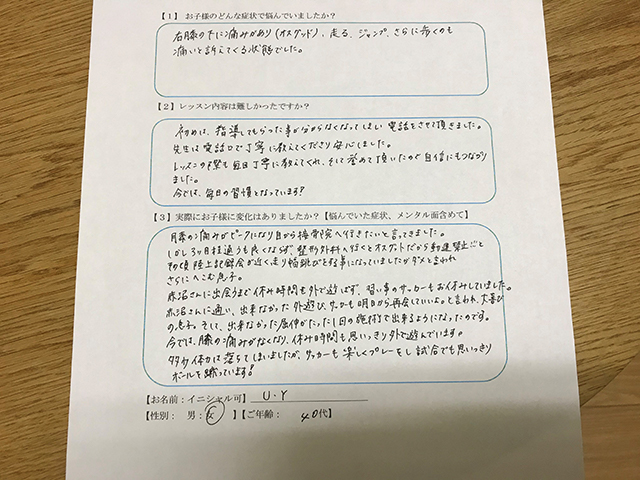 【1】お子様のどんな症状で悩んでいましたか？
右膝の下に痛みがあり(オスグッド)、走る、ジャンプ、さらに歩くのも
痛いと訴えてくる状態でした。
【2】レッスン内容は難しかったですか？
初めは、指導してもらった事が分からなくなってしまい電話をさせて頂きました。
先生は電話口で丁寧に教えてくださり安心しました。
レッスンの際も毎回丁寧に教えてくれ、そして誉めて頂いたので自信にもつながり
ました。
今では、毎日の習慣となっています！
【3】実際にお子様に変化はありましたか？【悩んでいた症状、メンタル面含めて】
膝の痛みがピークになり自から接骨院へ行きたいと言ってきました。
しかし3ヶ月程通うも良くならず、整形外科へ行くとオスグッドだから運動禁止。と
陸上記録会が近く、走り幅跳びを していましたがダメと言われ
さらにへこむ息子。
赤沼さんに出会うまで休み時間も外で遊ばず、習い事のサッカーもお休みしていました。
赤沼さんに通い、出来なかった外遊び、サッカーも明日から再会していいよ。と言われ、大喜び
の息子。そして、出来なかった屈伸がたった1回の施術で出来るようになったのです。
今では、膝の痛みがなくなり、休み時間も思いっきり外で遊んでいます。
多少体力は落ちてしまいましたが、サッカーも楽しくプレーをし試合でも思いっきり
ボールを蹴っています！
【お名前：イニシャル可】 U・Y
【性別： 男：女 】【ご年齢： 40代】